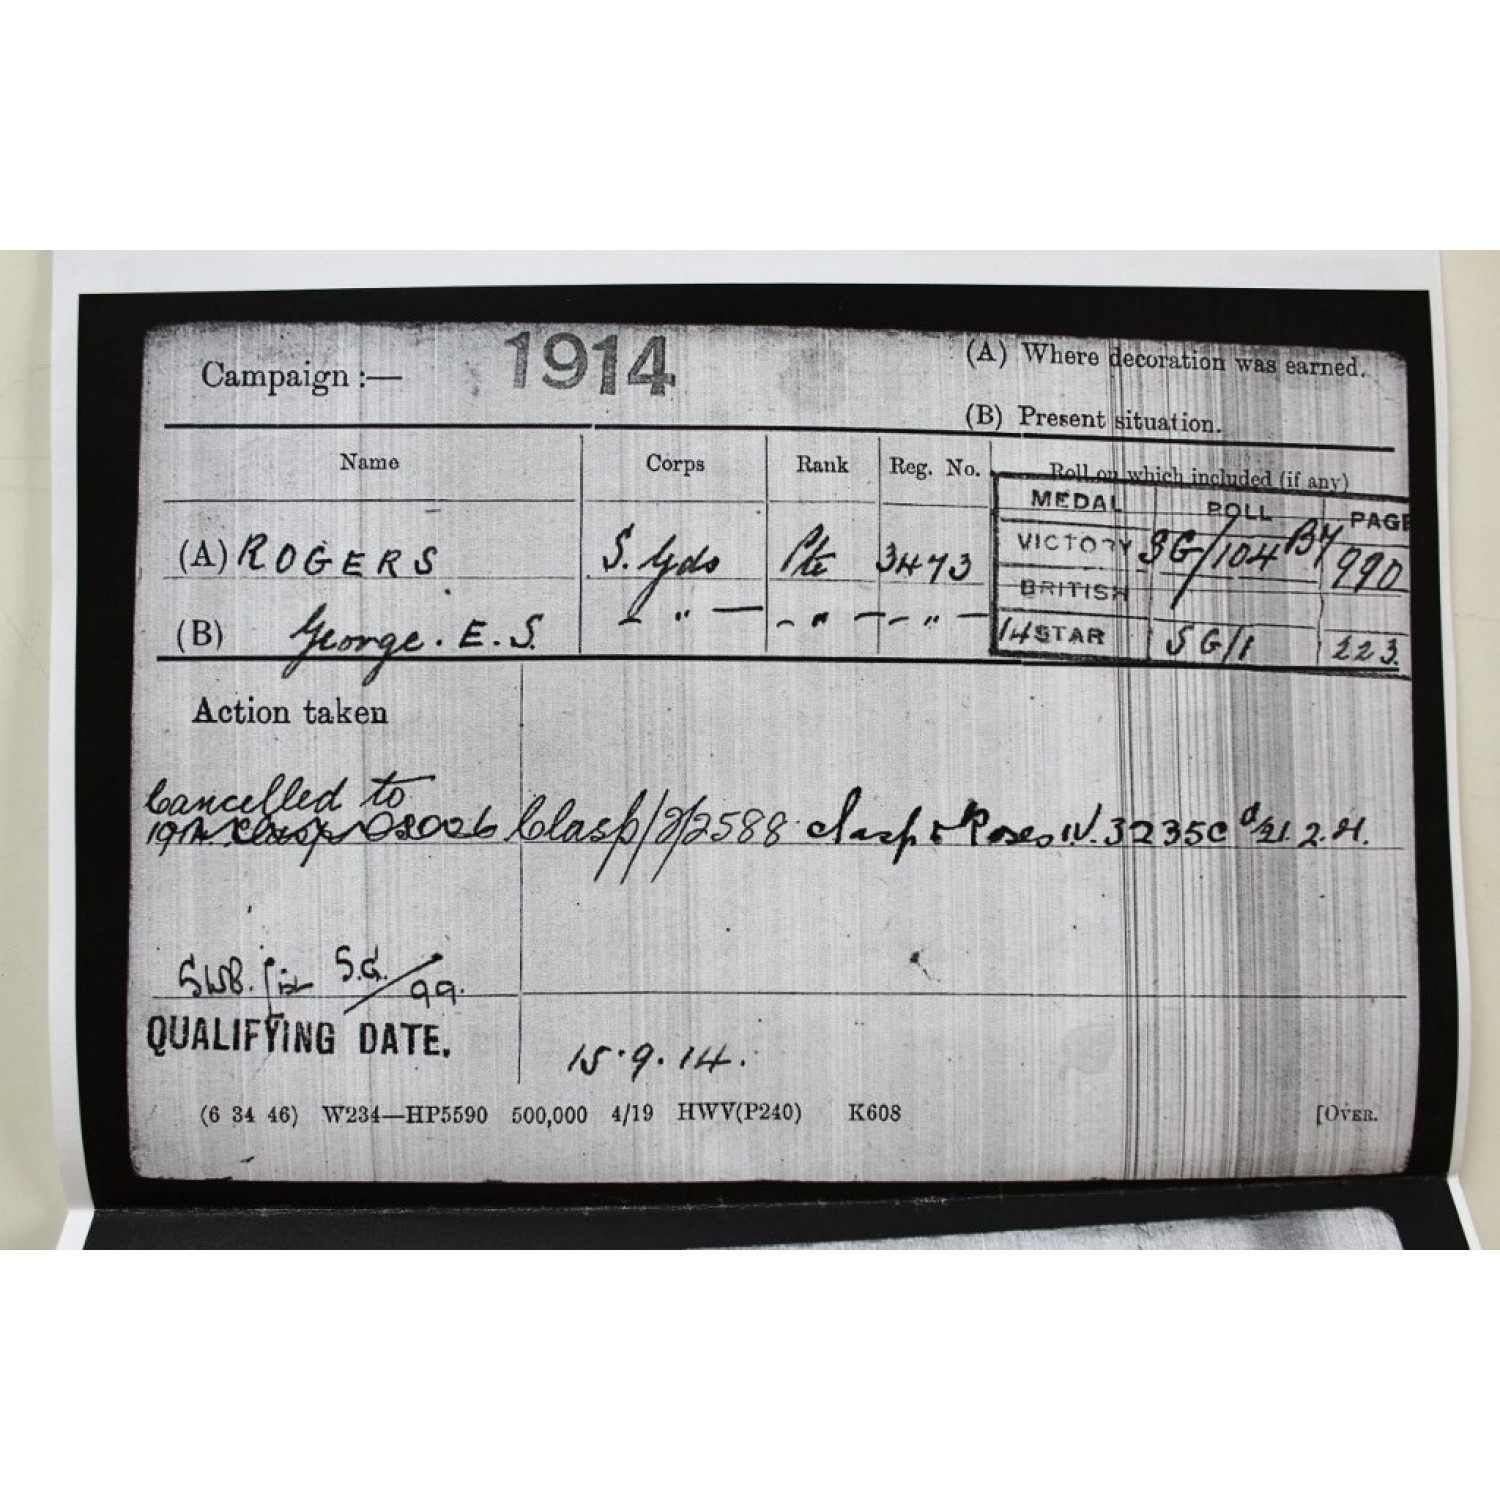 Campaign :— 1914
(A) Where decoration was earned.
(B) Present situation.
Name Corps Rank Reg. No. Roll on which included (if any)
MEDAL ROLL PAGE
(A) ROGERS S. Gds Pte 3473 VICTORY SG/104 B4 990
BRITISH
(B) George. E. S. — " — — " — — " — 14 STAR SG/1 223.
Action taken
Cancelled to
1914 Clasp Clasp/2/2588 Clasp & Roses IV. 3235C d/21.2.21.
SWB. list S.G./99.
QUALIFYING DATE. 15.9.14.
(6 34 46) W234—HP5590 500,000 4/19 HWV(P240) K608 [OVER.